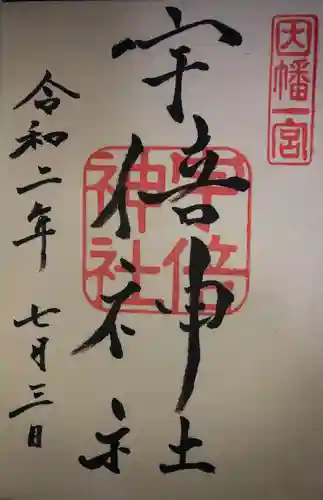 因幡一宮
宇倍神社
宇倍神社
令和二年七月三日